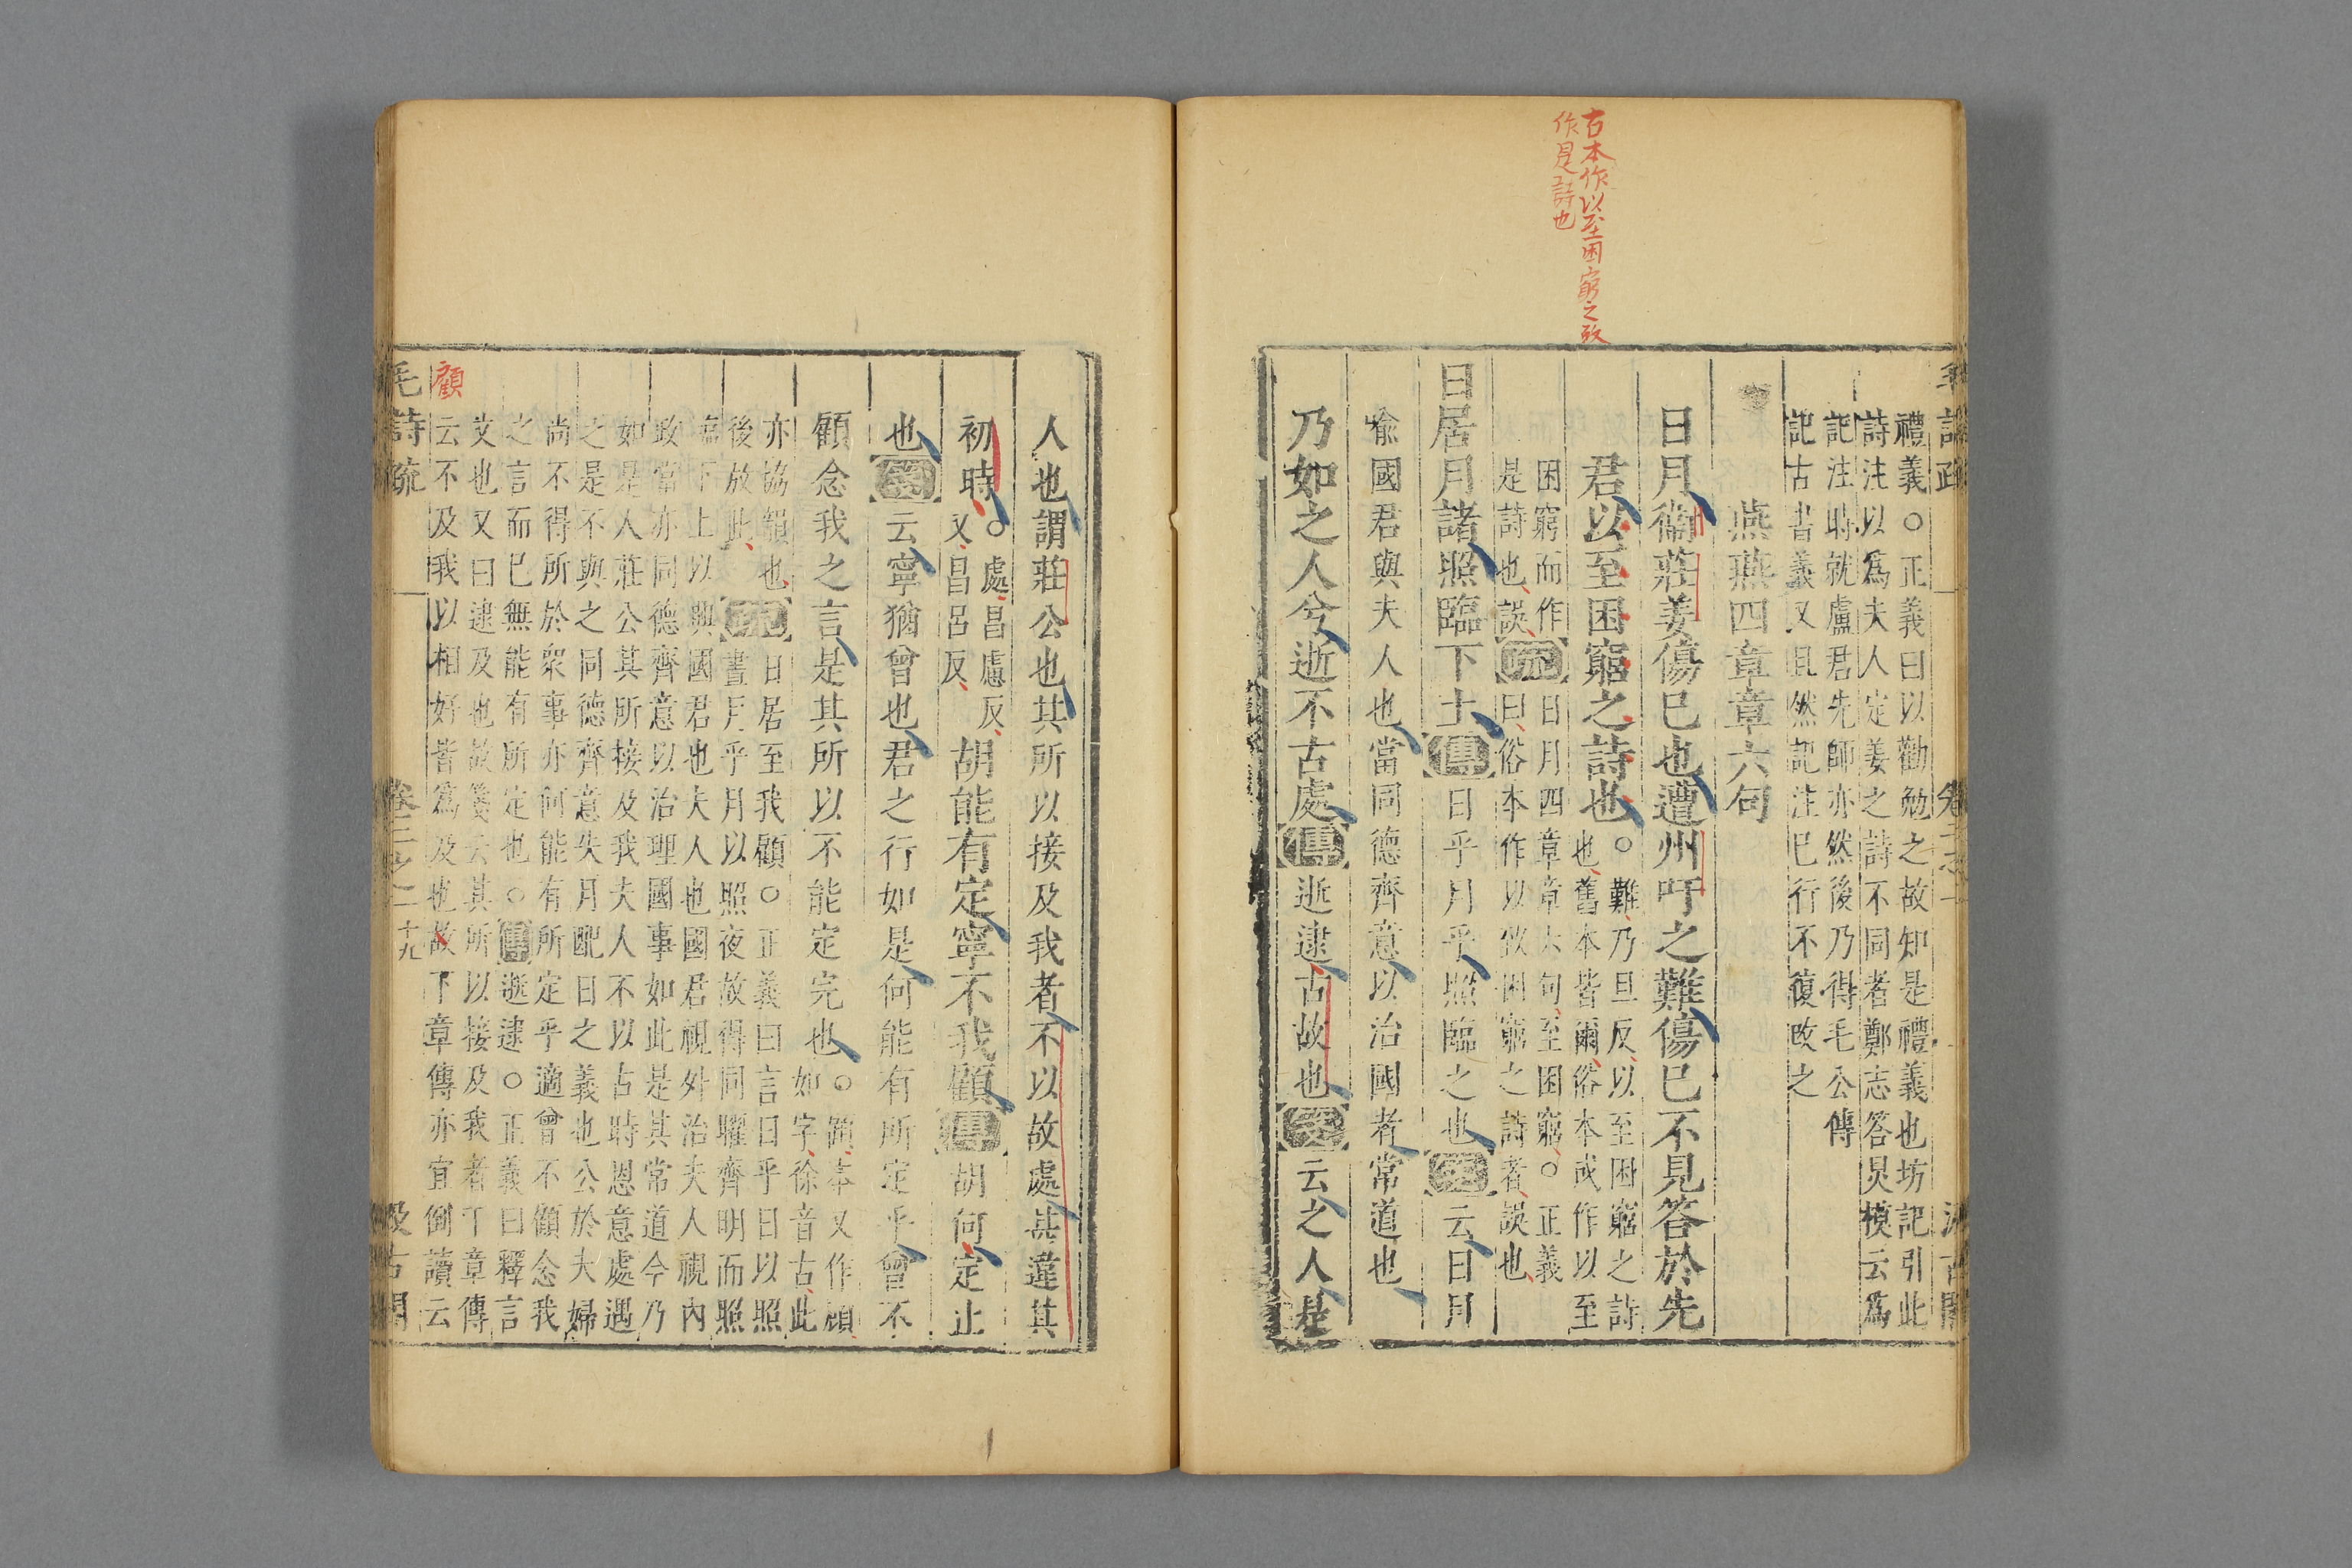 古本作以至困窮之故
作是詩也
禮義○正義曰以勸勉之故知是禮義也坊記引此
詩注以為夫人定姜之詩不同者鄭志答炅模云為
記注時就盧君先師亦然後乃得毛公傳
記古書義又且然記注已行不復改之
燕燕四章章六句
日月衞莊姜傷已也遭州吁之難傷已不見答於先
君以至困窮之詩也
○難乃旦反以至困窮之詩
也舊本皆爾俗本或作以至
困窮而作
是詩也誤
疏
日月四章章六句至困窮○正義
曰俗本作以致困窮之詩者誤也
日居月諸照臨下土傳日乎月乎照臨之也箋云日月
喻國君與夫人也當同德齊意以治國者常道也
乃如之人兮逝不古處傳逝逮古故也箋云之人是
人也謂莊公也其所以接及我者不以故處甚違其
初時
○處昌慮反
又昌呂反
胡能有定寧不我顧傳胡何定止
也箋云寧猶曾也君之行如是何能有所定乎曾不
顧念我之言是其所以不能定完也
○顧本又作頋
如字徐音古此
亦協韻也
後放此
疏
日居至我顧○正義曰言日乎日以照
晝月乎月以照夜故得同曜齊明而照
臨下土以興國君也夫人也國君視外治夫人視內
政當亦同德齊意以治理國事如此是其常道今乃
如是人莊公其所接及我夫人不以古時恩意處遇
之是不與之同德齊意失月配日之義也公於夫婦
尚不得所於眾事亦何能有所定乎適曾不顧念我
之言而已無能有所定也○傳逝逮○正義曰釋言
文也又曰逮及也故箋云其所以接及我者下章傳
云不及我以相好皆為及也故下章傳亦宜倒讀云
顧
毛詩疏
卷二之二
十九
汲古閣